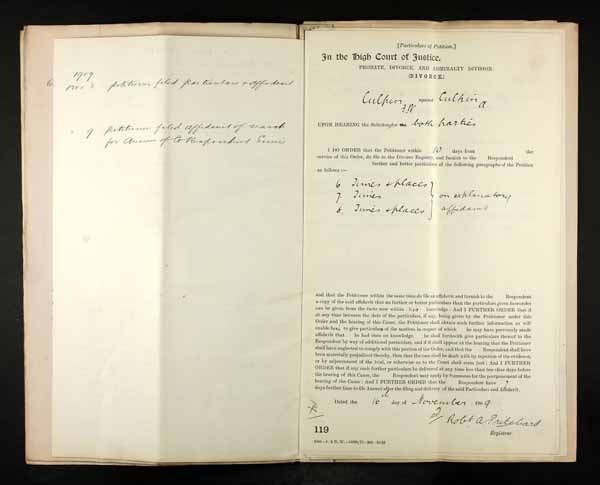 1919
Nov 3 petitioner filed particulars & affidavit
" 9 petitioner filed affidavit of search
for Answer of Co Respondent
[Particulars of Petition.]
In the High Court of Justice.
PROBATE, DIVORCE, AND ADMIRALTY DIVISION
(DIVORCE)
Culpin against Culpin
UPON HEARING the Solicitors for both parties
I DO ORDER that the Petitioner within 10 days from the
service of this Order, do file in the Divorce Registry, and furnish to the Respondent
further and better particulars of the following paragraphs of the Petition
as follows :—
6 Times & places
7 Times or explanatory
8. Times & places affidavit
and that the Petitioner within the same time do file an affidavit and furnish to the Respondent
a copy of the said affidavit that no further or better particulars than the particulars given hereunder
can be given from the facts now within her knowledge : And I FURTHER ORDER that if
at any time between the date of the particulars, if any, being given by the Petitioner under this
Order and the hearing of this Cause, the Petitioner shall obtain such further information as will
enable her to give particulars of the matters in respect of which he may have previously made
affidavit that he had then no knowledge, he shall forthwith give particulars thereof to the
Respondent by way of additional particulars, and if it shall appear at the hearing that the Petitioner
shall have neglected to comply with this portion of the Order, and that the Respondent shall have
been materially prejudiced thereby, then that the case shall be dealt with by rejection of the evidence,
or by adjournment of the trial, or otherwise as to the Court shall seem just : And I FURTHER
ORDER that if any such further particulars be delivered at any time less than ten clear days before
the hearing of this Cause, the Respondent may apply by Summons for the postponement of the
hearing of the Cause : And I FURTHER ORDER that the Respondent have 7
days further time to file Answer after the filing and delivery of the said Particulars and Affidavit.
Dated the 10 day of November 1919
Robt A Pritchard
Registrar
119